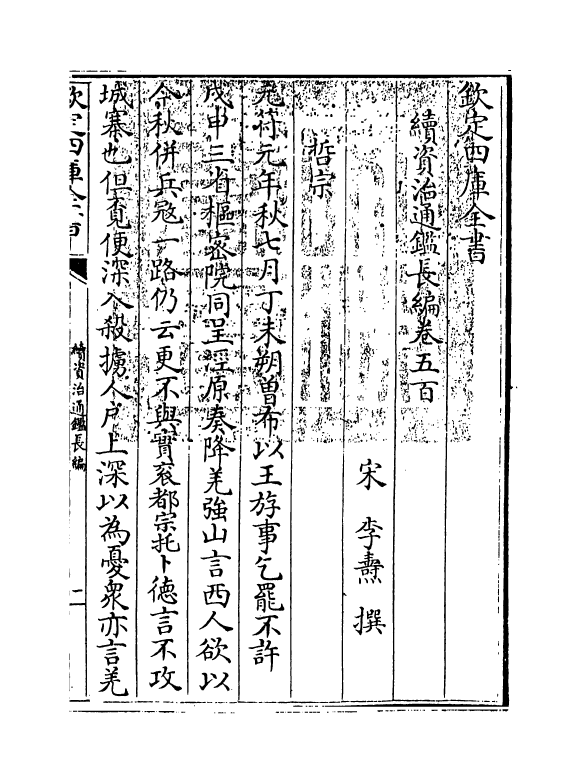 欽定四庫全書
續資治通鑑長編卷五百
宋 李燾 撰
哲宗
元符元年秋七月丁未朔曾布以王斿事乞罷不許
戊申三省樞密院同呈涇原奏降羌強山言西人欲以
今秋併兵冦一路仍云更不與實裒都宗托卜德言不攻
城寨也但覔便深入殺擄人户上深以為憂衆亦言羌
欽定四庫全書
續資治通鑑長編